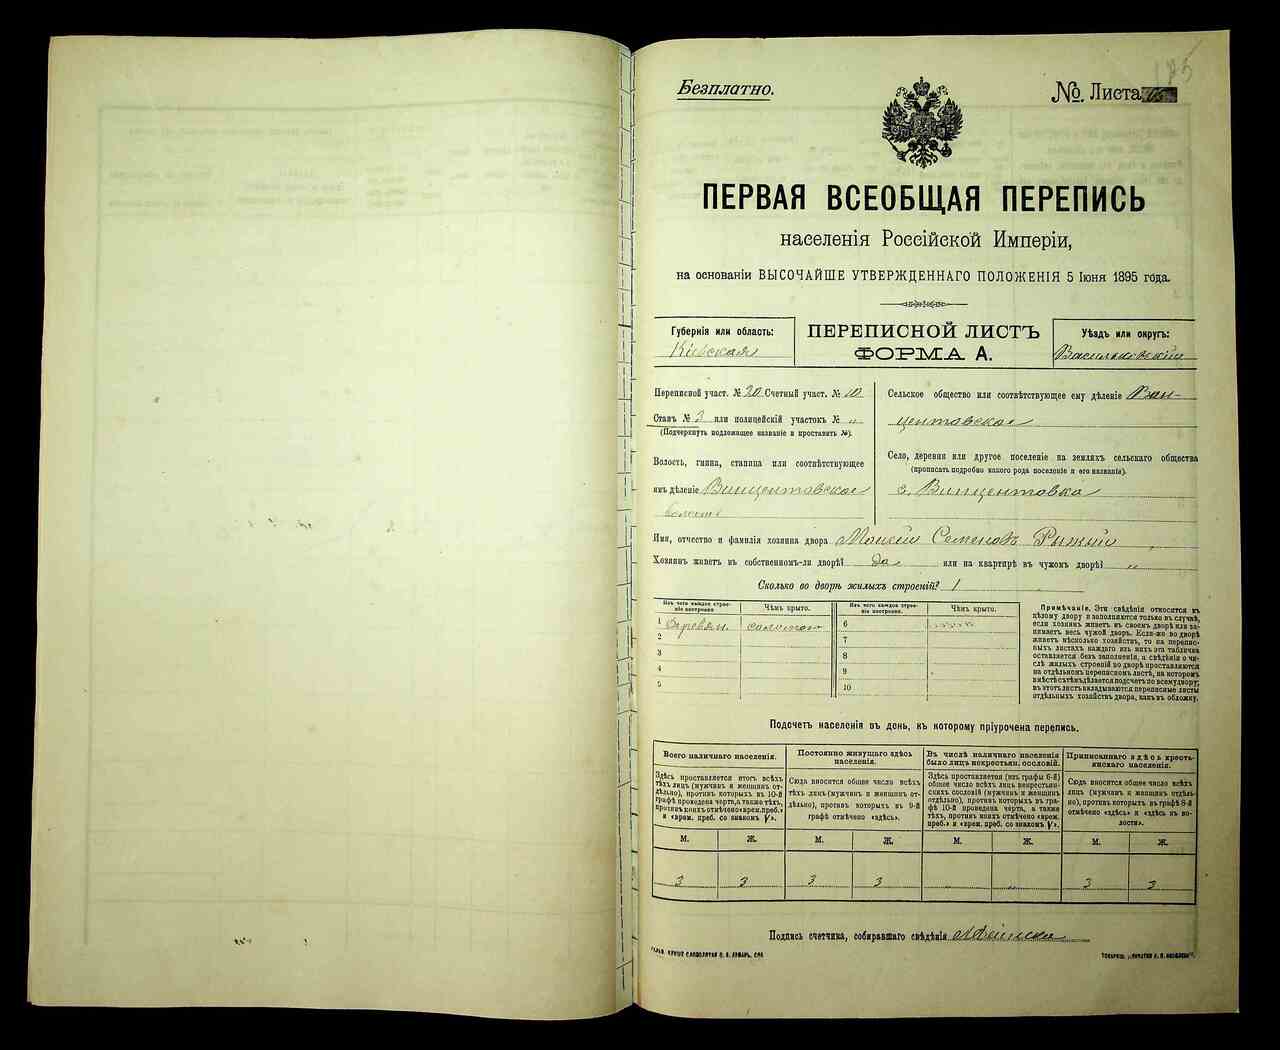 185
Безплатно.
№ Листа
ПЕРВАЯ ВСЕОБЩАЯ ПЕРЕПИСЬ
населенія Россійской Имперіи,
на основаніи ВЫСОЧАЙШЕ УТВЕРЖДЕННАГО ПОЛОЖЕНІЯ 5 Іюня 1895 года.
Губернія или область:
Кіевская
ПЕРЕПИСНОЙ ЛИСТЪ
ФОРМА А.
Уѣздъ или округъ:
Васильковскій
Переписной участ. № 20 Счетный участ. № 10
Станъ № 3 или полицейскій участокъ № „
(Подчеркнуть подлежащее названіе и проставить №).
Волость, гмина, станица или соотвѣтствующее
имъ дѣленіе Винцентовская
волость
Сельское общество или соотвѣтствующее ему дѣленіе Вин-
центовское
Село, деревня или другое поселеніе на земляхъ сельскаго общества
(прописать подробно какого рода поселеніе и его названіе).
с. Винцентовка
Имя, отчество и фамилія хозяина двора Моисей Семеновъ Рыжий
Хозяинъ живетъ въ собственномъ-ли дворѣ? да или на квартирѣ въ чужомъ дворѣ? „
Сколько во дворѣ жилыхъ строеній? 1
Изъ чего каждое строе-
ніе построено
Чѣмъ крыто.
Изъ чего каждое строе-
ніе построено.
Чѣмъ крыто.
1 Деревян. соломою
2
3
4
5
6
7
8
9
10
Примѣчаніе. Эти свѣдѣнія относятся къ
цѣлому двору и заполняются только въ случаѣ,
если хозяинъ живетъ въ своемъ дворѣ или за-
нимаетъ весь чужой дворъ. Если-же во дворѣ
живетъ нѣсколько хозяйствъ, то на перепис-
ныхъ листахъ каждаго изъ нихъ эта табличка
оставляется безъ заполненія, а свѣдѣнія о чи-
слѣ жилыхъ строеній во дворѣ проставляются
на отдѣльномъ переписномъ листѣ, на которомъ
вмѣстѣ съ тѣмъ дѣлается подсчетъ по всему двору;
въ этотъ листъ вкладываются переписные листы
отдѣльныхъ хозяйствъ двора, какъ въ обложку.
Подсчетъ населенія въ день, къ которому пріурочена перепись.
Всего наличнаго населенія.
Здѣсь проставляется итогъ всѣхъ
тѣхъ лицъ (мужчинъ и женщинъ от-
дѣльно), противъ которыхъ въ 10-й
графѣ проведена черта, а также тѣхъ,
противъ коихъ отмѣчено «врем. преб.»
и «врем. преб. со знакомъ V».
Постоянно живущаго здѣсь
населенія.
Сюда вносится общее число всѣхъ
тѣхъ лицъ (мужчинъ и женщинъ от-
дѣльно), противъ которыхъ въ 9-й
графѣ отмѣчено «здѣсь».
Въ числѣ наличнаго населенія
было лицъ некрестьян. сословій.
Здѣсь проставляется (изъ графы 6-й)
общее число всѣхъ лицъ некрестьян-
скихъ сословій (мужчинъ и женщинъ
отдѣльно), противъ которыхъ въ гра-
фѣ 10-й проведена черта, а также
тѣхъ, противъ коихъ отмѣчено «врем.
преб.» и «врем. преб. со знакомъ V».
Приписаннаго здѣсь кресть-
янскаго населенія.
Сюда вносится общее число всѣхъ
лицъ (мужчинъ и женщинъ отдѣль-
но), противъ которыхъ въ графѣ 8-й
отмѣчено «здѣсь» и «здѣсь въ во-
лости».
М. Ж. М. Ж. М. Ж. М. Ж.
3 3 3 3 „ „ 3 3
Подпись счетчика, собиравшаго свѣдѣнія